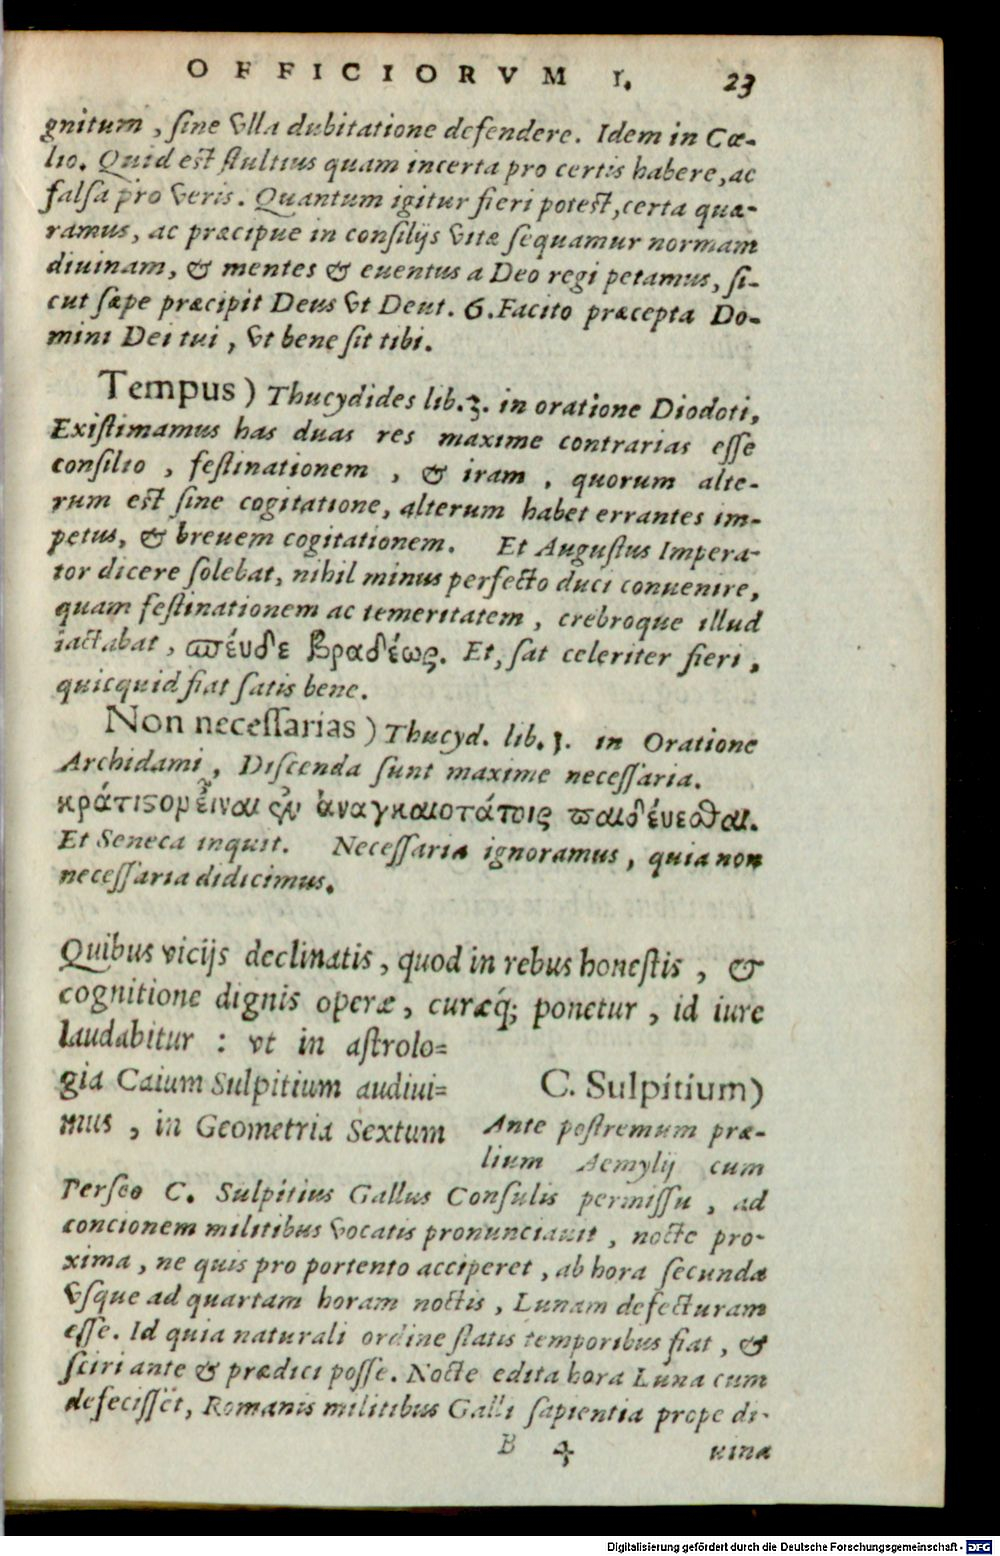 OFFICIORVM I. 23
gnitum, sine vlla dubitatione defendere. Idem in Cœ-
lio. Quid est stultius quam incerta pro certis habere, ac
falsa pro veris. Quantum igitur fieri potest, certa quæ-
ramus, ac præcipue in consilijs vitæ sequamur normam
diuinam, & mentes & euentus a Deo regi petamus, si-
cut sæpe præcipit Deus vt Deut. 6. Facito præcepta Do-
mini Dei tui, vt bene sit tibi.
Tempus) Thucydides lib. 3. in oratione Diodoti,
Existimamus has duas res maxime contrarias esse
consilio, festinationem, & iram, quorum alte-
rum est sine cogitatione, alterum habet errantes im-
petus, & breuem cogitationem. Et Augustus Impera-
tor dicere solebat, nihil minus perfecto duci conuenire,
quam festinationem ac temeritatem, crebroque illud
iactabat, σπέυδε βραδέως. Et, sat celeriter fieri,
quicquid fiat satis bene.
Non necessarias) Thucyd. lib. 1. in Oratione
Archidami, Discenda sunt maxime necessaria.
κράτιϛομ εἶναι ἐν ἀναγκαιοτάτοις παιδέυεσθαι.
Et Seneca inquit. Necessaria ignoramus, quia non
necessaria didicimus.
Quibus vicijs declinatis, quod in rebus honestis, &
cognitione dignis operæ, curæq́; ponetur, id iure
laudabitur : vt in astrolo=
gia Caium Sulpitium audiui=
mus, in Geometria Sextum
C. Sulpitium)
Ante postremum præ-
lium Aemylij cum
Perseo C. Sulpitius Gallus Consulis permissu, ad
concionem militibus vocatis pronunciauit, nocte pro-
xima, ne quis pro portento acciperet, ab hora secunda
vsque ad quartam horam noctis, Lunam defecturam
esse. Id quia naturali ordine statis temporibus fiat, &
sciri ante & prædici posse. Nocte edita hora Luna cum
defecisset, Romanis militibus Galli sapientia prope di-
B 4 uina
Digitalisierung gefördert durch die Deutsche Forschungsgemeinschaft - DFG